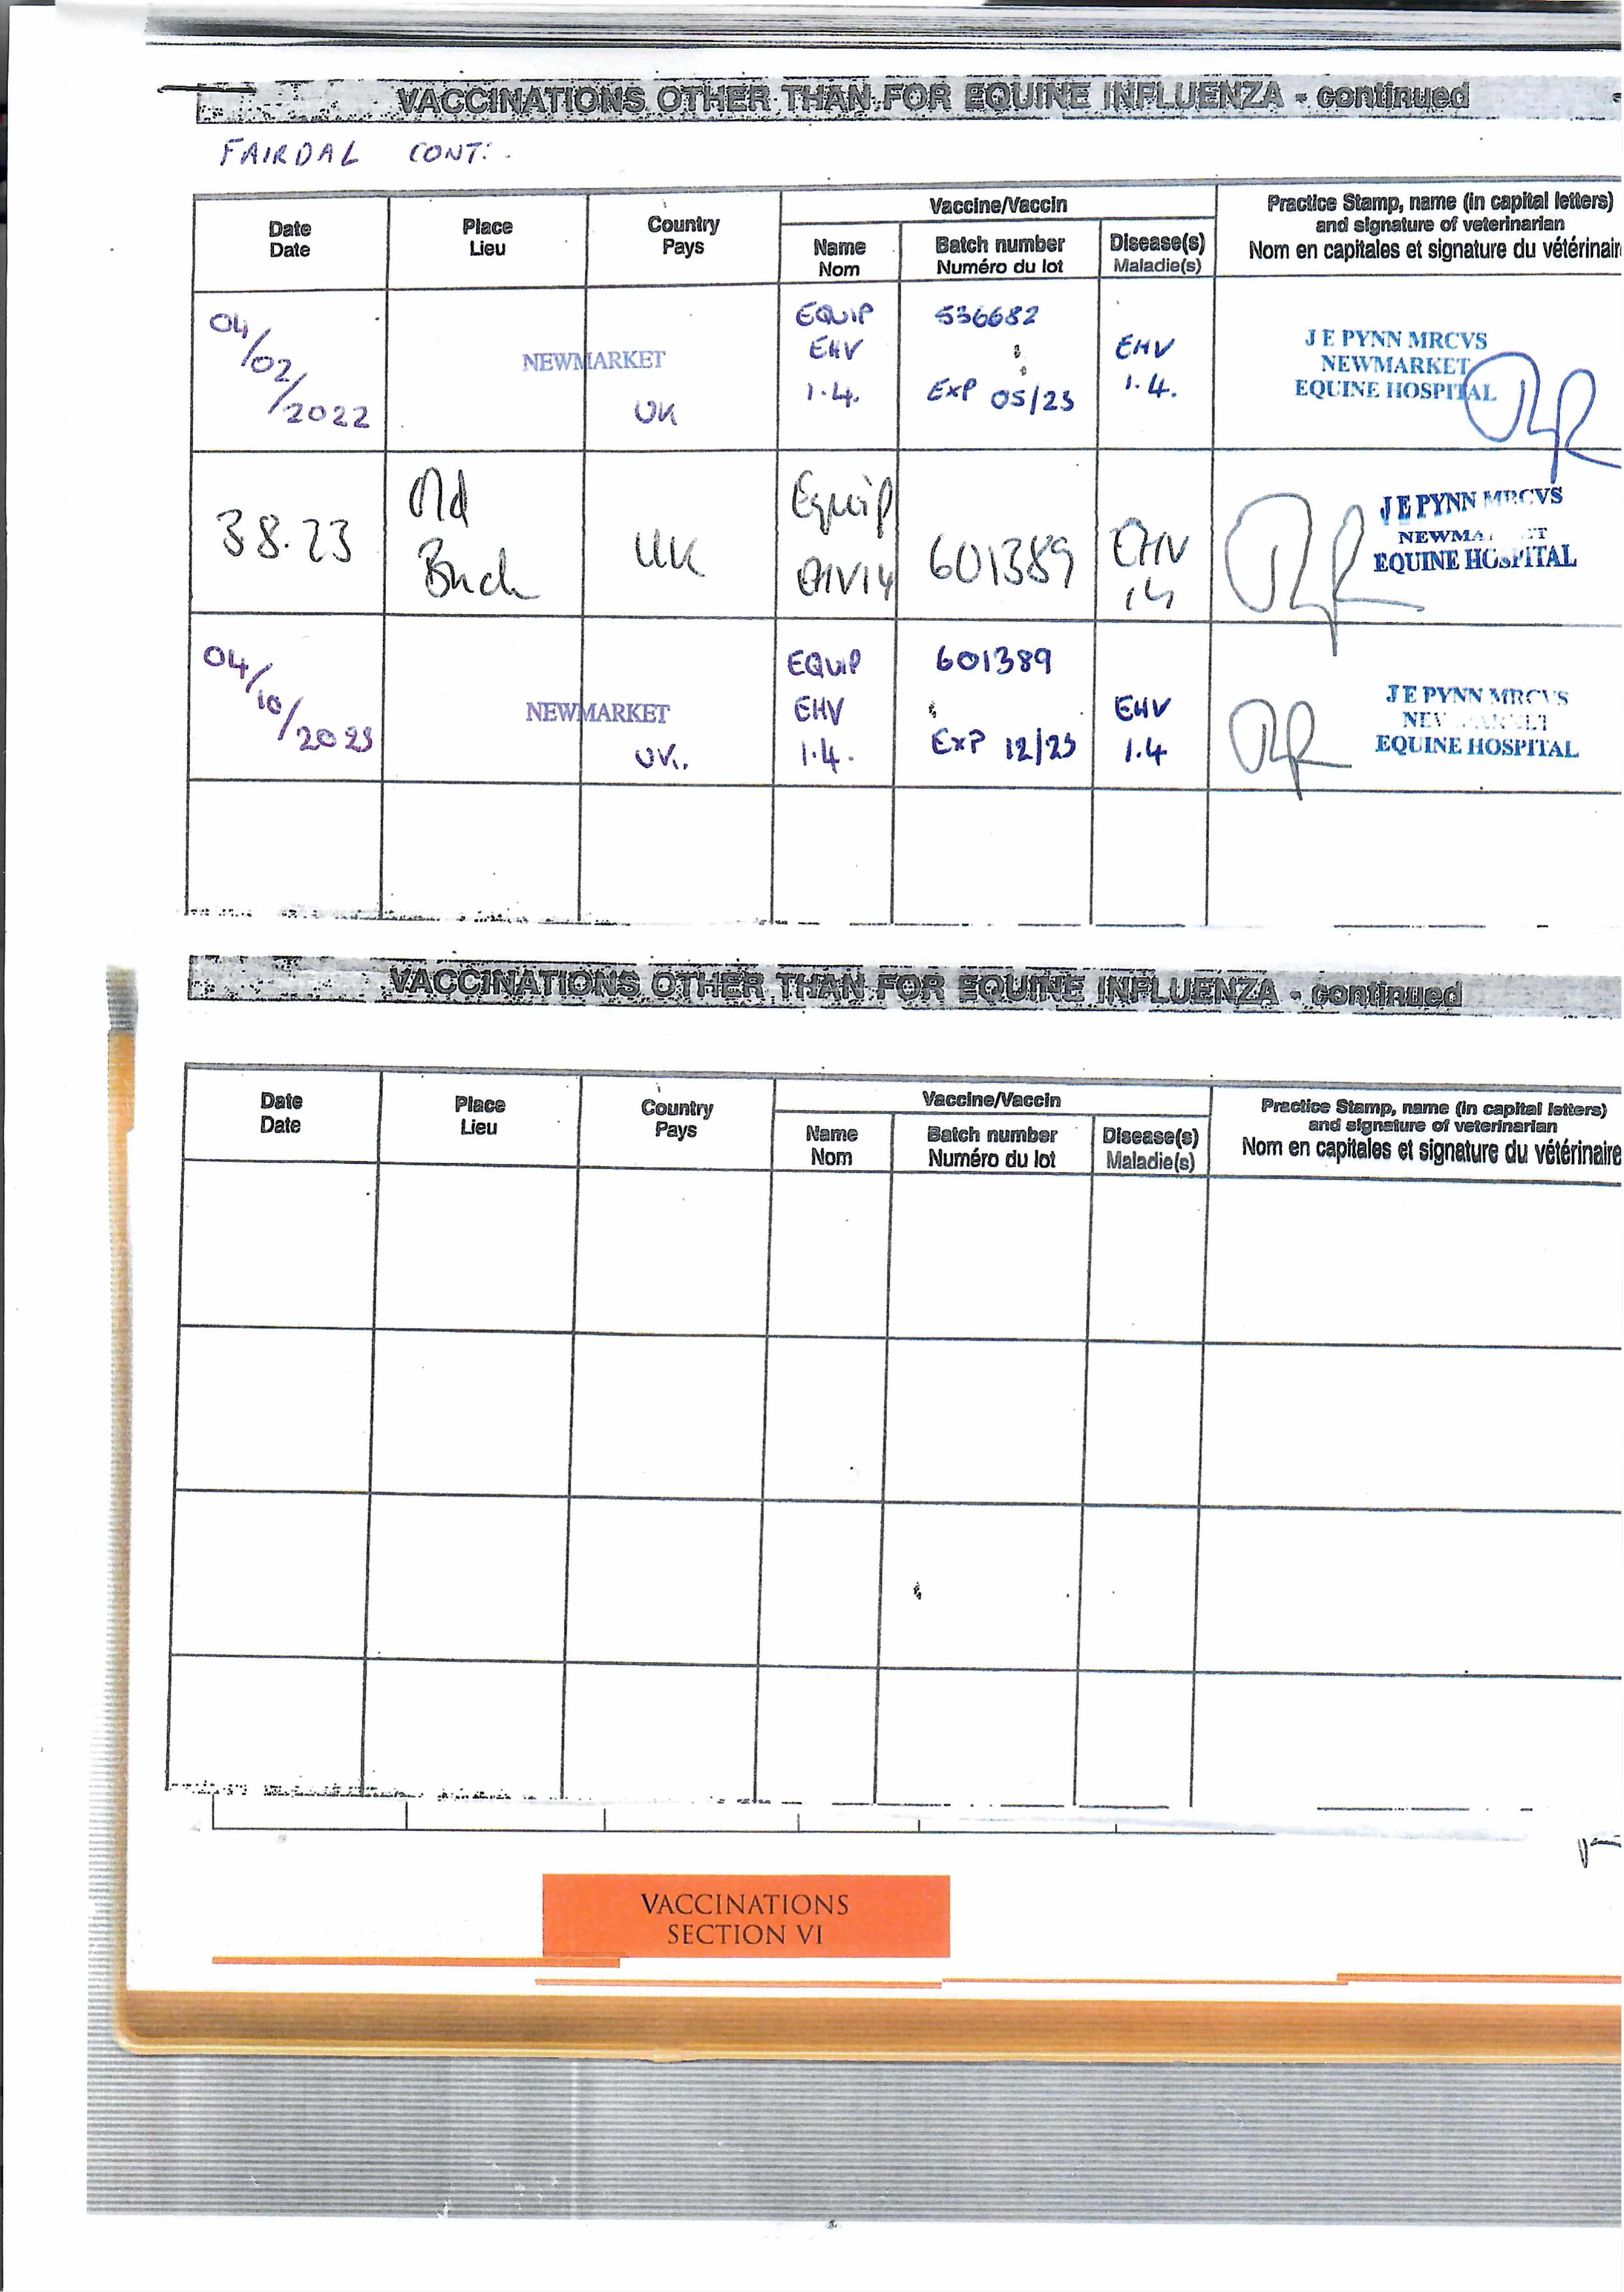 VACCINATIONS OTHER THAN FOR EQUINE INFLUENZA - continued
FAIRDAL CONT:.
Date
Date
Place
Lieu
Country
Pays
Vaccine/Vaccin
Name
Nom
Batch number
Numéro du lot
Disease(s)
Maladie(s)
Practice Stamp, name (in capital letters)
and signature of veterinarian
Nom en capitales et signature du vétérinair
04/02/2022
NEWMARKET
UK
EQUIP
EHV
1.4.
536682
EXP 05/23
EHV
1.4.
J E PYNN MRCVS
NEWMARKET
EQUINE HOSPITAL
3.8.23
Old
UK
Equip
EHV14
601389
EHV
14
J E PYNN MRCVS
EQUINE HOSPITAL
04/10/2023
NEWMARKET
UK.
EQUIP
EHV
1.4.
601389
EXP 12/23
EHV
1.4
J E PYNN MRCVS
EQUINE HOSPITAL
VACCINATIONS OTHER THAN FOR EQUINE INFLUENZA - continued
Date
Date
Place
Lieu
Country
Pays
Vaccine/Vaccin
Name
Nom
Batch number
Numéro du lot
Disease(s)
Maladie(s)
Practice Stamp, name (in capital letters)
and signature of veterinarian
Nom en capitales et signature du vétérinaire
VACCINATIONS
SECTION VI